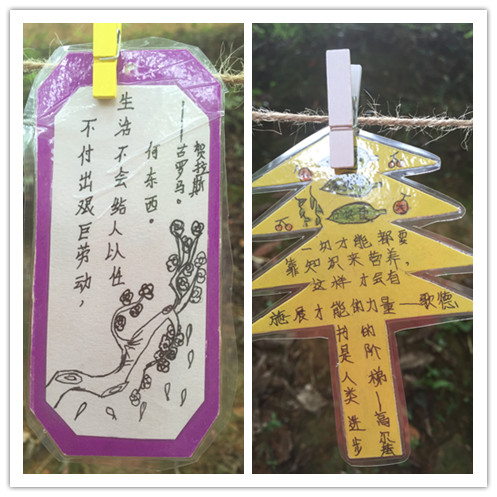 不付出艰巨劳动，
生活不会给人以任
何东西。
——古罗马。
贺拉斯
一切才能都要
靠知识来营养，
这样才会有
施展才能的力量——歌德
是人类进步
的阶梯—高尔基